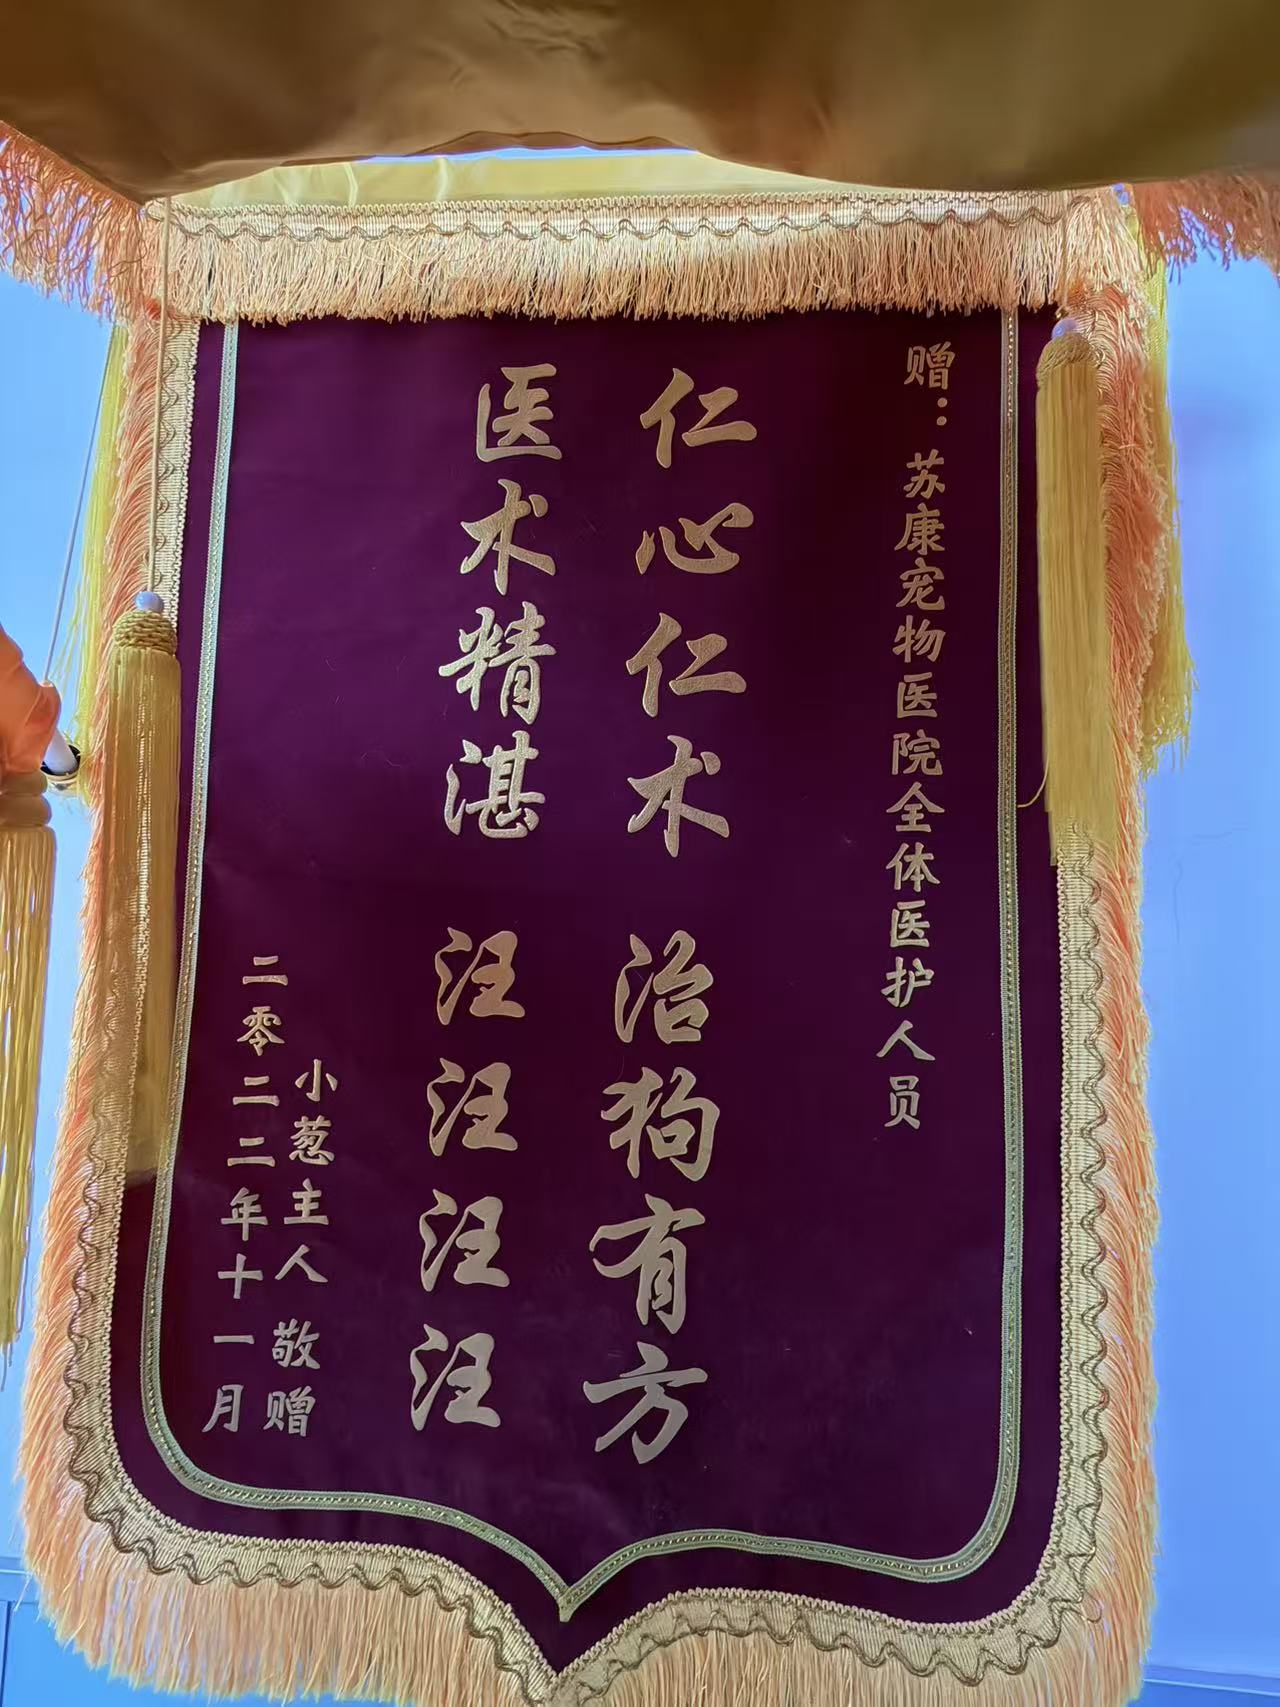 赠：苏康宠物医院全体医护人员
仁心仁术 治狗有方
医术精湛 汪汪汪汪
小葱主人 敬赠
二零二二年十一月